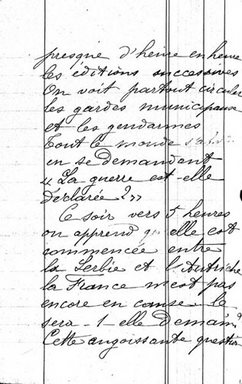 presque d'heure en heure
les éditions successives
On voit partout circuler
les gardes municipaux
et les gendarmes
Tout le monde
en se demandant
« La guerre est-elle
déclarée ? »
Le soir vers 5 heures
on apprend qu'elle est
commencée entre
la Serbie et l'Autriche
la France n'est pas
encore en cause le
sera-t-elle demain ?
Cette angoissante question